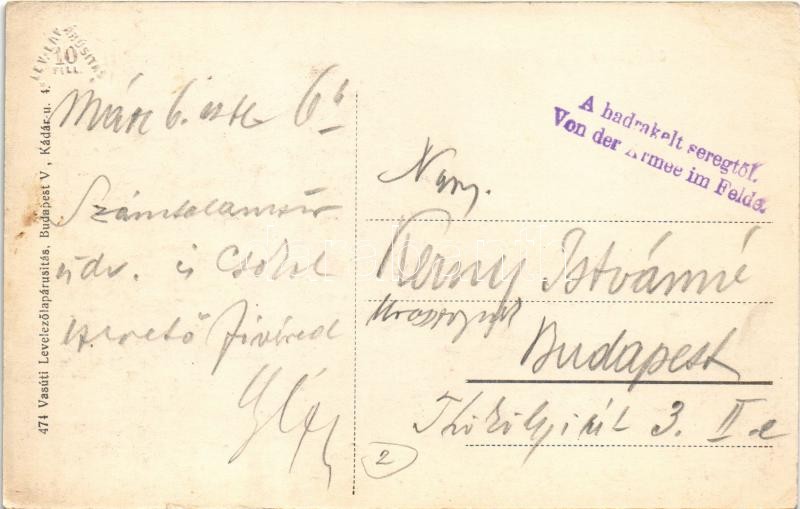 LEV. LAP ÁRUSITÁS
10
FILL.
474 Vasúti Levelezőlapárusitás, Budapest V., Kádár-u. 4.
Márc 6. este 6h
Számtalanszor
üdv. és csókol
szerető fivéred
A hadrakelt seregtől.
Von der Armee im Felde.
Nag.
Kerny Istvánné
Budapest
Thököly út 3. II. e
2